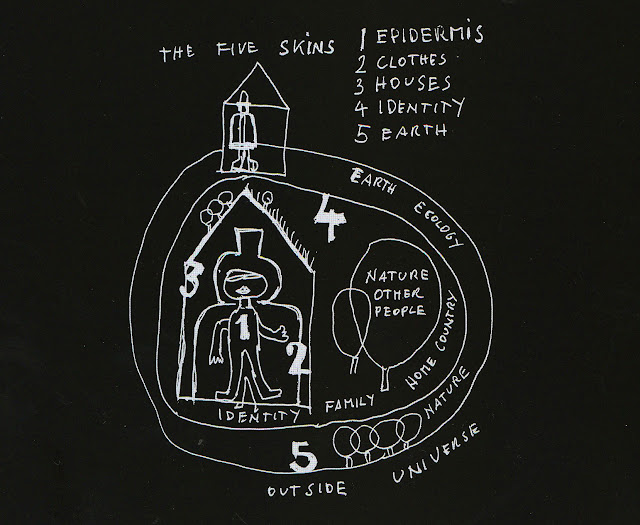 THE FIVE SKINS
1 EPIDERMIS
2 CLOTHES
3 HOUSES
4 IDENTITY
5 EARTH
EARTH ECOLOGY
4
3
NATURE
OTHER
PEOPLE
1
2
HOME COUNTRY
IDENTITY FAMILY
NATURE
5
UNIVERSE
OUTSIDE